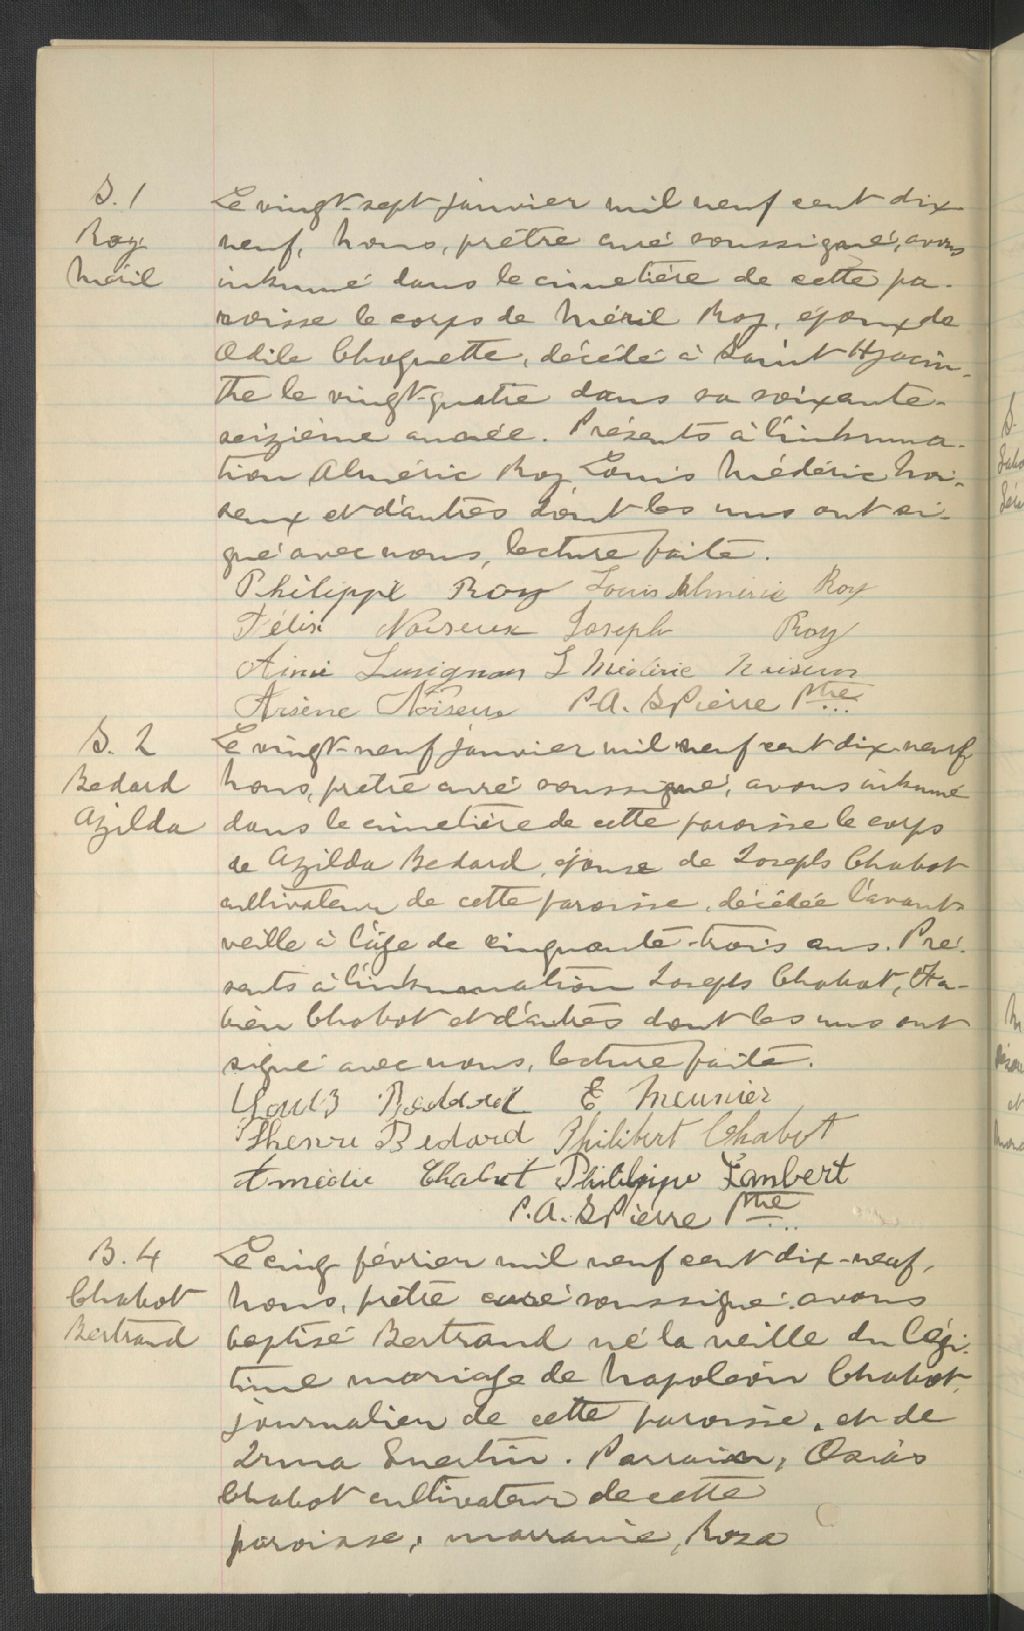 S. 1
Roy
Méril
Le vingt-sept janvier mil neuf cent dix
neuf, Nous, prêtre curé soussigné, avons
inhumé dans le cimetière de cette pa-
roisse le corps de Méril Roy, époux de
Odile Choquette, décédé à Saint Hyacin-
the le vingt-quatre dans sa soixante-
seizième année. Présents à l'inhuma-
tion Alméric Roy Louis Médéric Noi-
seux et d'autres dont les uns ont si-
gné avec nous, lecture faite.
Philippe Roy Louis Almeric Roy
Félix Noiseux Joseph Roy
Aimé Lusignan L Médéric Noiseux
Arsène Noiseux P.A. S Pierre Ptre
S. 2
Bedard
Azilda
Le vingt-neuf janvier mil neuf cent dix-neuf
Nous, prêtre curé soussigné, avons inhumé
dans le cimetière de cette paroisse le corps
de Azilda Bedard, épouse de Joseph Chabot
cultivateur de cette paroisse, décédée l'avant-
veille à l'âge de cinquante-trois ans. Pré-
sents à l'inhumation Joseph Chabot, Fa-
bien Chabot et d'autres dont les uns ont
signé avec nous, lecture faite.
Louis Beddard E Meunier
Phenri Bedard Philibert Chabot
Amédée Chabot Philippe Lambert
P.A. S Pierre Ptre
B. 4
Chabot
Bertrand
Le cinq février mil neuf cent dix-neuf,
Nous, prêtre curé soussigné, avons
baptisé Bertrand né la veille du légi-
time mariage de Napoléon Chabot,
journalier de cette paroisse, et de
Irma Guertin. Parrain, Osias
Chabot cultivateur de cette
paroisse, marraine, Rosa